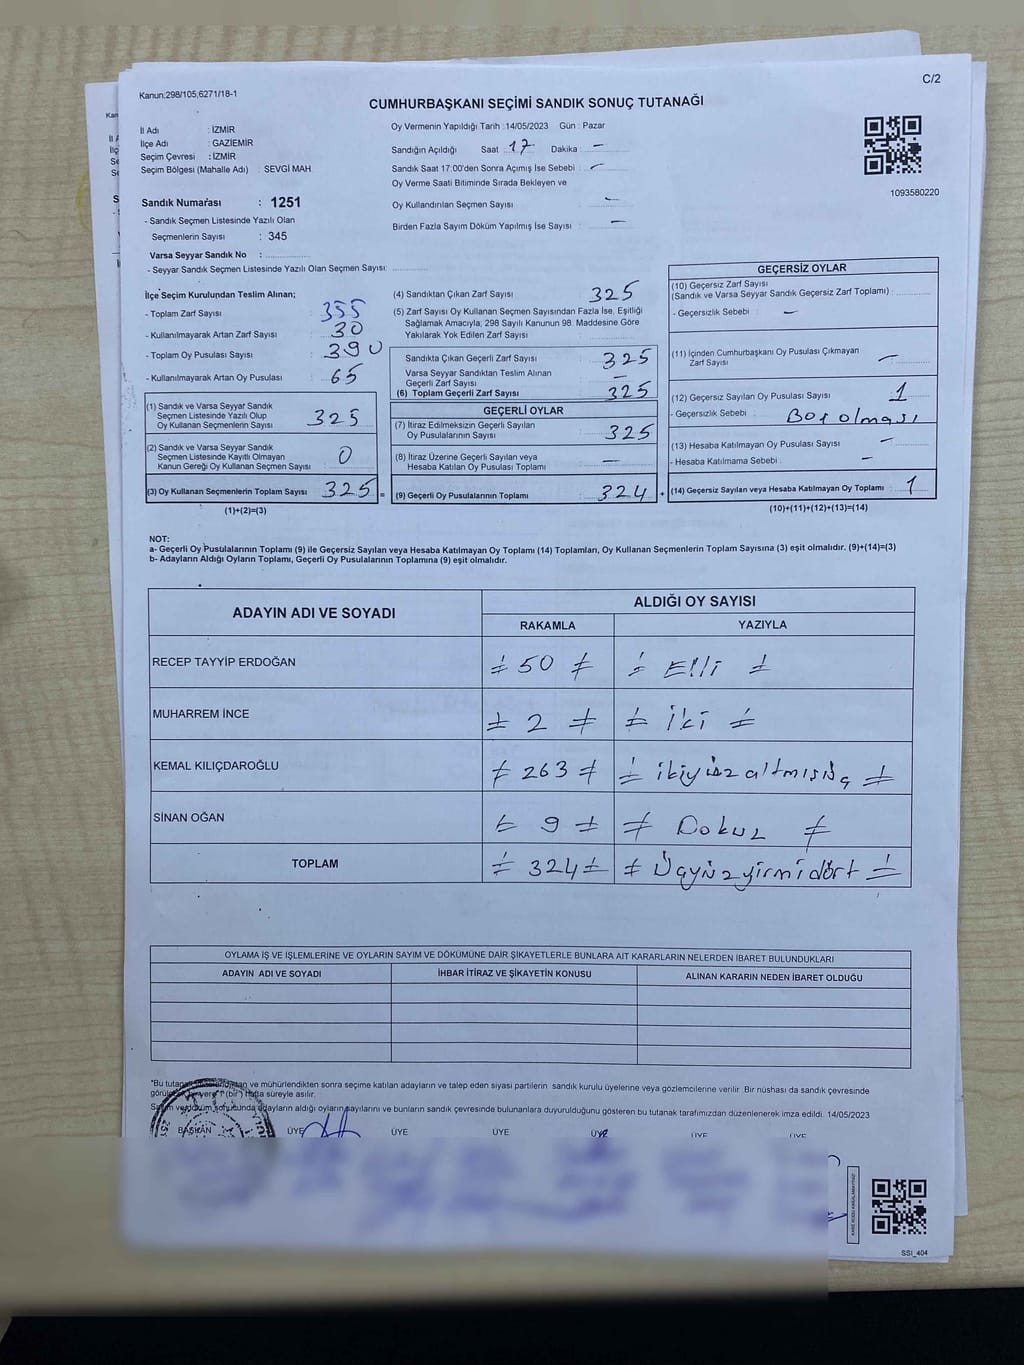 C/2
Kanun:298/105,6271/18-1
CUMHURBAŞKANI SEÇİMİ SANDIK SONUÇ TUTANAĞI
İl Adı : İZMİR
İlçe Adı : GAZİEMİR
Seçim Çevresi : İZMİR
Seçim Bölgesi (Mahalle Adı) : SEVGİ MAH
Oy Vermenin Yapıldığı Tarih :14/05/2023 Gün : Pazar
Sandığın Açıldığı Saat : 17 Dakika : –
Sandık Saat 17:00'den Sonra Açımış İse Sebebi : –
Oy Verme Saati Bitiminde Sırada Bekleyen ve
Oy Kullandırılan Seçmen Sayısı : –
Birden Fazla Sayım Döküm Yapılmış İse Sayısı : –
1093580220
Sandık Numarası : 1251
- Sandık Seçmen Listesinde Yazılı Olan
Seçmenlerin Sayısı : 345
Varsa Seyyar Sandık No :
- Seyyar Sandık Seçmen Listesinde Yazılı Olan Seçmen Sayısı:
İlçe Seçim Kurulundan Teslim Alınan;
- Toplam Zarf Sayısı : 355
- Kullanılmayarak Artan Zarf Sayısı : 30
- Toplam Oy Pusulası Sayısı : 390
- Kullanılmayarak Artan Oy Pusulası : 65
(1) Sandık ve Varsa Seyyar Sandık
Seçmen Listesinde Yazılı Olup
Oy Kullanan Seçmenlerin Sayısı : 325
(2) Sandık ve Varsa Seyyar Sandık
Seçmen Listesinde Kayıtlı Olmayan
Kanun Gereği Oy Kullanan Seçmen Sayısı : 0
(3) Oy Kullanan Seçmenlerin Toplam Sayısı : 325 =
(1)+(2)=(3)
(4) Sandıktan Çıkan Zarf Sayısı : 325
(5) Zarf Sayısı Oy Kullanan Seçmen Sayısından Fazla İse, Eşitliği
Sağlamak Amacıyla; 298 Sayılı Kanunun 98. Maddesine Göre
Yakılarak Yok Edilen Zarf Sayısı :
Sandıkta Çıkan Geçerli Zarf Sayısı : 325
Varsa Seyyar Sandıktan Teslim Alınan
Geçerli Zarf Sayısı : –
(6) Toplam Geçerli Zarf Sayısı : 325
GEÇERLİ OYLAR
(7) İtiraz Edilmeksizin Geçerli Sayılan
Oy Pusulalarının Sayısı : 325
(8) İtiraz Üzerine Geçerli Sayılan veya
Hesaba Katılan Oy Pusulası Toplamı : –
(9) Geçerli Oy Pusulalarının Toplamı : 324 +
GEÇERSİZ OYLAR
(10) Geçersiz Zarf Sayısı
(Sandık ve Varsa Seyyar Sandık Geçersiz Zarf Toplamı) :
- Geçersizlik Sebebi : –
(11) İçinden Cumhurbaşkanı Oy Pusulası Çıkmayan
Zarf Sayısı : –
(12) Geçersiz Sayılan Oy Pusulası Sayısı : 1
- Geçersizlik Sebebi : Boş olması
(13) Hesaba Katılmayan Oy Pusulası Sayısı : –
- Hesaba Katılmama Sebebi : –
(14) Geçersiz Sayılan veya Hesaba Katılmayan Oy Toplamı : 1
(10)+(11)+(12)+(13)=(14)
NOT:
a- Geçerli Oy Pusulalarının Toplamı (9) ile Geçersiz Sayılan veya Hesaba Katılmayan Oy Toplamı (14) Toplamları, Oy Kullanan Seçmenlerin Toplam Sayısına (3) eşit olmalıdır. (9)+(14)=(3)
b- Adayların Aldığı Oyların Toplamı, Geçerli Oy Pusulalarının Toplamına (9) eşit olmalıdır.
ADAYIN ADI VE SOYADI
ALDIĞI OY SAYISI
RAKAMLA YAZIYLA
RECEP TAYYİP ERDOĞAN 50 Elli
MUHARREM İNCE 2 iki
KEMAL KILIÇDAROĞLU 263 ikiyüzaltmışüç
SİNAN OĞAN 9 Dokuz
TOPLAM 324 Üçyüzyirmidört
OYLAMA İŞ VE İŞLEMLERİNE VE OYLARIN SAYIM VE DÖKÜMÜNE DAİR ŞİKAYETLERLE BUNLARA AİT KARARLARIN NELERDEN İBARET BULUNDUKLARI
ADAYIN ADI VE SOYADI İHBAR İTİRAZ VE ŞİKAYETİN KONUSU ALINAN KARARIN NEDEN İBARET OLDUĞU
"Bu tutanak ve mühürlendikten sonra seçime katılan adayların ve talep eden siyasi partilerin sandık kurulu üyelerine veya gözlemcilerine verilir. Bir nüshası da sandık çevresinde
yere 1 (bir) hafta süreyle asılır.
adayların aldığı oyların sayılarını ve bunların sandık çevresinde bulunanlara duyurulduğunu gösteren bu tutanak tarafımızdan düzenlenerek imza edildi. 14/05/2023
BAŞKAN ÜYE ÜYE ÜYE ÜYE ÜYE ÜYE
SSI_404